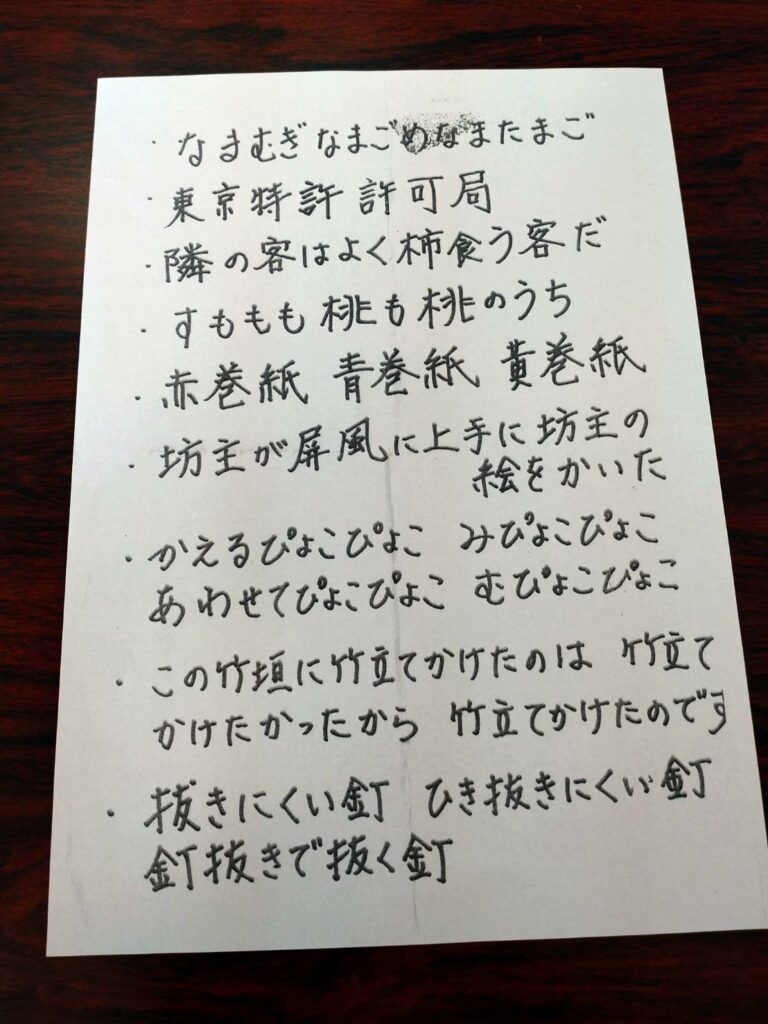 ・なまむぎなまごめなまたまご
・東京特許 許可局
・隣の客はよく柿食う客だ
・すももも 桃も 桃のうち
・赤巻紙 青巻紙 黄巻紙
・坊主が屏風に上手に坊主の
絵をかいた
・かえるぴょこぴょこ みぴょこぴょこ
あわせてぴょこぴょこ むぴょこぴょこ
・この竹垣に竹立てかけたのは 竹立て
かけたかったから 竹立てかけたのです
・抜きにくい釘 ひき抜きにくい釘
釘抜きで抜く釘